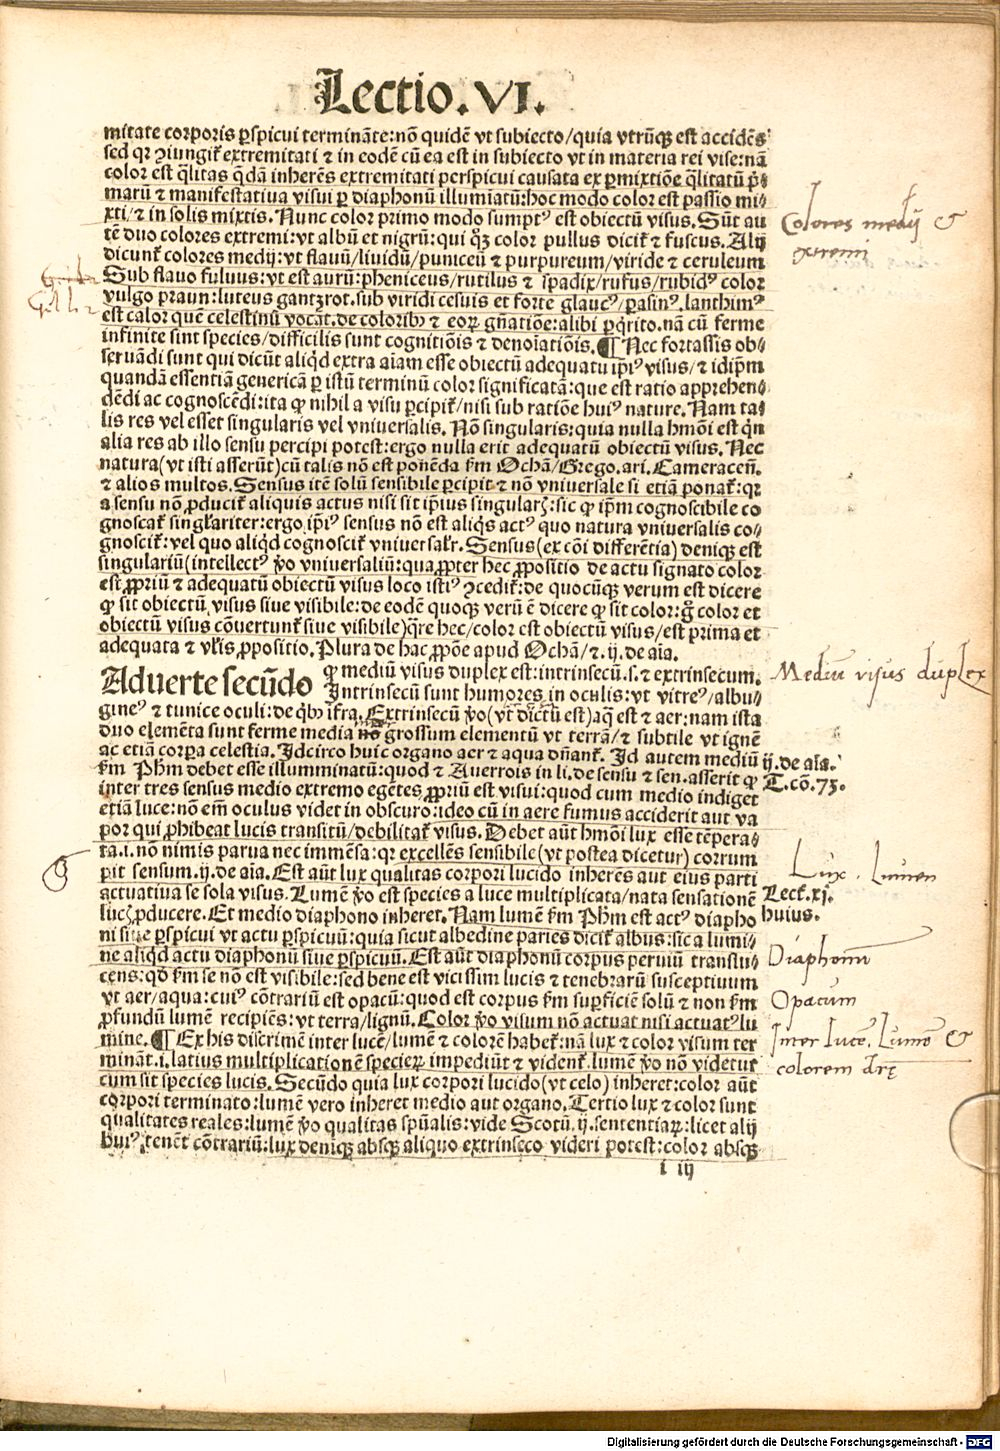 Lectio. VI.
mitate corporis ꝑspicui terminãte: nõ quidẽ vt subiecto/ quia vtrũqꝫ est accidẽs
sed qꝛ ↄiungit᷑ extremitati ⁊ in eodẽ cũ ea est in subiecto vt in materia rei vise: nã
color est q̃litas q̃dã inherẽs extremitati perspicui causata ex ꝑmixtiõe q̃litatũ p̃-
matũ ⁊ manifestatiua visui ꝑ diaphonũ illumiatũ: hoc modo color est passio mi-
xti/ ⁊ in solis mixtis. Nunc color primo modo sumptꝰ est obiectũ visus. Sũt au
tẽ duo colores extremi: vt albũ et nigrũ: qui qꝫ color pullus dicit᷑ ⁊ fuscus. Alij
dicunt᷑ colores medij: vt flauũ/ liuidũ/ puniceũ ⁊ purpureum/ viride ⁊ ceruleum
Sub flauo fuluus: vt est aurũ: pheniceus/ rutilus ⁊ spadix/ rufus/ rubidꝰ color
vulgo praun: luteus gantzrot. sub viridi cesuis et forte glaucꝰ/ ꝑasinꝰ. Ianthinꝰ
est calor quẽ celestinũ vocãt. de coloribꝰ ⁊ eoꝝ gñatiõe: alibi ꝑq̃rito. nã cũ ferme
infinite sint species/ difficilis sunt cognitiõis ⁊ denoĩatiõis. ¶ Nec fortassis ob-
seruãdi sunt qui dicũt aliqd extra aĩam esse obiectũ adequatũ ip̃iꝰ visus/ ⁊ idip̃m
quandã essentiã genericã ꝑ istũ terminũ color significatã: que est ratio apprehen-
dẽdi ac cognoscẽdi: ita ꝙ nihil a visu ꝑcipit᷑/ nisi sub ratiõe huiꝰ nature. Nam ta-
lis res vel esset singularis vel vniuersalis. Nõ singularis: quia nulla hmõi est qn
alia res ab illo sensu percipi potest: ergo nulla erit adequatũ obiectũ visus. Nec
natura (vt isti asserũt) cũ talis nõ est ponẽda ẜm Ochã/ Grego. ari. Cameraceñ.
⁊ alios multos. Sensus itẽ solũ sensibile ꝑcipit ⁊ nõ vniuersale si etiã ponat᷑: qꝛ
a sensu nõ ꝓducit᷑ aliquis actus nisi sit ip̃ius singularꝭ: sic ꝙ ip̃m cognoscibile co
gnoscat᷑ singlariter: ergo ip̃iꝰ sensus nõ est aliqs actꝰ quo natura vniuersalis co-
gnoscit᷑: vel quo aliqd cognoscit᷑ vniuersalr. Sensus (ex cõi differẽtia) deniqꝫ est
singulariũ (intellectꝰ ꝟo vniuersaliũ: quapropter hec ꝓpositio de actu signato color
est ꝓpriũ ⁊ adequatũ obiectũ visus loco istiꝰ ↄcedit᷑: de quocũqꝫ verum est dicere
ꝙ sit obiectũ visus siue visibile: de eodẽ quoqꝫ verũ ẽ dicere ꝙ sit color: g̊ color et
obiectũ visus cõuertunt᷑ siue visibile) q̃re hec/ color est obiectũ visus/ est prima et
adequata ⁊ vl̃is ꝓpositio. Plura de hac ꝓpõe apud Ochã/ ⁊ .ij. de aĩa.
Aduerte secũdo ꝙ mediũ visus duplex est: intrinsecũ .s. ⁊ extrinsecum.
Intrinsecũ sunt humores in oculis: vt vitreꝰ/ albu-
gineꝰ ⁊ tunice oculi: de qbꝰ ĩfra. Extrinsecũ ꝟo (vt dictũ est) aq̃ est ⁊ aer: nam ista
duo elemẽta sunt ferme media nõ grossum elementũ vt terrã/ ⁊ subtile vt ignẽ
ac etiã corꝑa celestia. Idcirco huic organo aer ⁊ aqua dñant᷑. Id autem mediũ
ẜm Ph̃m debet esse illumminatũ: quod ⁊ Auerrois in li. de sensu ⁊ sen. asserit ꝙ
inter tres sensus medio extremo egẽtes ꝓpriũ est visui: quod cum medio indiget
etiã luce: nõ em̃ oculus videt in obscuro: ideo cũ in aere fumus acciderit aut va
por qui ꝓhibeat lucis transitũ/ debilitat᷑ visus. Debet aũt hmõi lux esse tẽpera-
ta .i. nõ nimis parua nec immẽsa: qꝛ excellẽs sensibile (vt postea dicetur) corrum
pit sensum .ij. de aĩa. Est aũt lux qualitas corpori lucido inherẽs aut eius parti
actuatiua se sola visus. Lumẽ ꝟo est species a luce multiplicata/ nata sensationẽ
lucꝭ ꝓducere. Et medio diaphono inheret. Nam lumẽ ẜm Ph̃m est actꝰ diapho
ni siue ꝑspicui vt actu ꝑspicuũ: quia sicut albedine paries dicit᷑ albus: sic a lumi-
ne aliqd actu diaphonũ siue ꝑspicuũ. Est aũt diaphonũ corpus peruiũ translu-
cens: qd ẜm se nõ est visibile: sed bene est vicissim lucis ⁊ tenebrarũ susceptiuum
vt aer/ aqua: cuiꝰ cõtrariũ est opacũ: quod est corpus ẜm suꝑficiẽ solũ ⁊ non ẜm
ꝓfundũ lumẽ recipiẽs: vt terra/ lignũ. Color ꝟo visum nõ actuat nisi actuatꝰ lu
mine. ¶ Ex his discrimẽ inter lucẽ/ lumẽ ⁊ colorẽ habet᷑: nã lux ⁊ color visum ter
minãt .i. latius multiplicationẽ specieꝝ impediũt ⁊ vident᷑. lumẽ ꝟo nõ videtur
cum sit species lucis. Secũdo quia lux corpori lucido (vt celo) inheret: color aũt
corpori terminato: lumẽ vero inheret medio aut organo. Tertio lux ⁊ color sunt
qualitates reales: lumẽ ꝟo qualitas sp̃ualis: vide Scotũ .ij. sententiaꝝ: licet alij
huiꝰ tenẽt cõtrariũ: lux deniqꝫ absqꝫ aliquo extrinseco videri potest: color absqꝫ
i iij
Colores medij &
extremi
Mediũ visus duplex
ij. de aĩa.
T. cõ. 75.
Lux. Lumen
Lect. xj.
huius.
Diaphonum
Opacum
Inter lucẽ, Lumẽ &
colorem drẽ
Digitalisierung gefördert durch die Deutsche Forschungsgemeinschaft - DFG